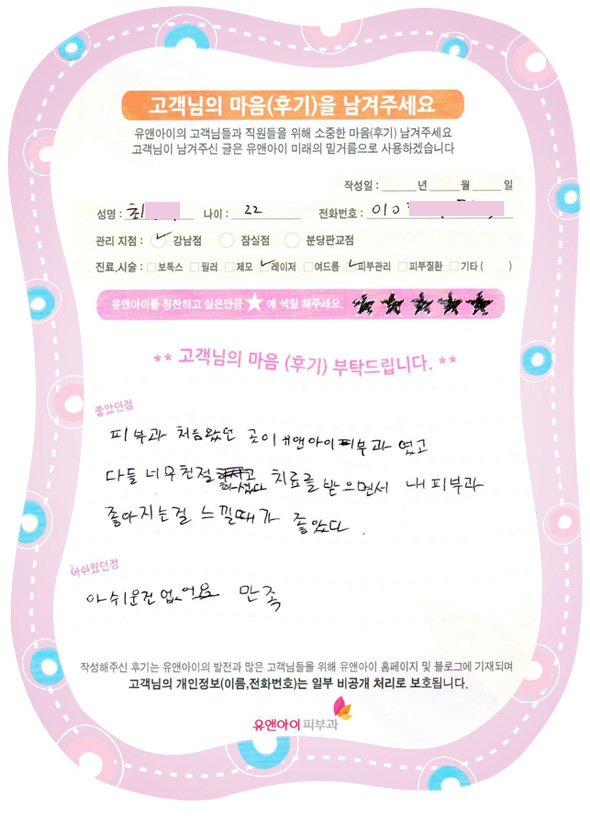 고객님의 마음(후기)을 남겨주세요
유앤아이의 고객님들과 직원들을 위해 소중한 마음(후기) 남겨주세요
고객님이 남겨주신 글은 유앤아이 미래의 밑거름으로 사용하겠습니다
작성일 : ______년 _____월 _____일
성명 : 최 나이 : 22 전화번호 : 010
관리 지점 : 강남점 잠실점 분당판교점
진료,시술 : 보톡스 필러 제모 레이저 여드름 피부관리 피부질환 기타 ( )
유앤아이를 칭찬하고 싶은만큼 ★ 에 색칠 해주세요. ★★★★★
** 고객님의 마음 (후기) 부탁드립니다. **
좋았던점
피부과 처음왔던 곳이 유앤아이피부과 였고
다들 너무친절 하셨다 치료를 받으면서 내피부과
좋아지는걸 느낄때가 좋았다.
아쉬웠던점
아쉬운건 없어요 만족
작성해주신 후기는 유앤아이의 발전과 많은 고객님들을 위해 유앤아이 홈페이지 및 블로그에 기재되며
고객님의 개인정보(이름,전화번호)는 일부 비공개 처리로 보호됩니다.
유앤아이피부과